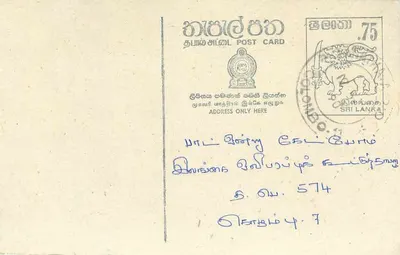 තැපැල් පත
தபாலட்டை POST CARD
ශ්‍රී ලංකා
.75
ලිපිනය පමණක් මෙහි ලියන්න
முகவரி மாத்திரம் இங்கே எழுதுக
ADDRESS ONLY HERE
இலங்கை
SRI LANKA
COLOMBO
பாட் டொன்று கேட் போம்
இலங்கை ஒலிபரப்புக் கூட்டுத்தாபனம்
த. பெ. 574
கொழும்பு. 7